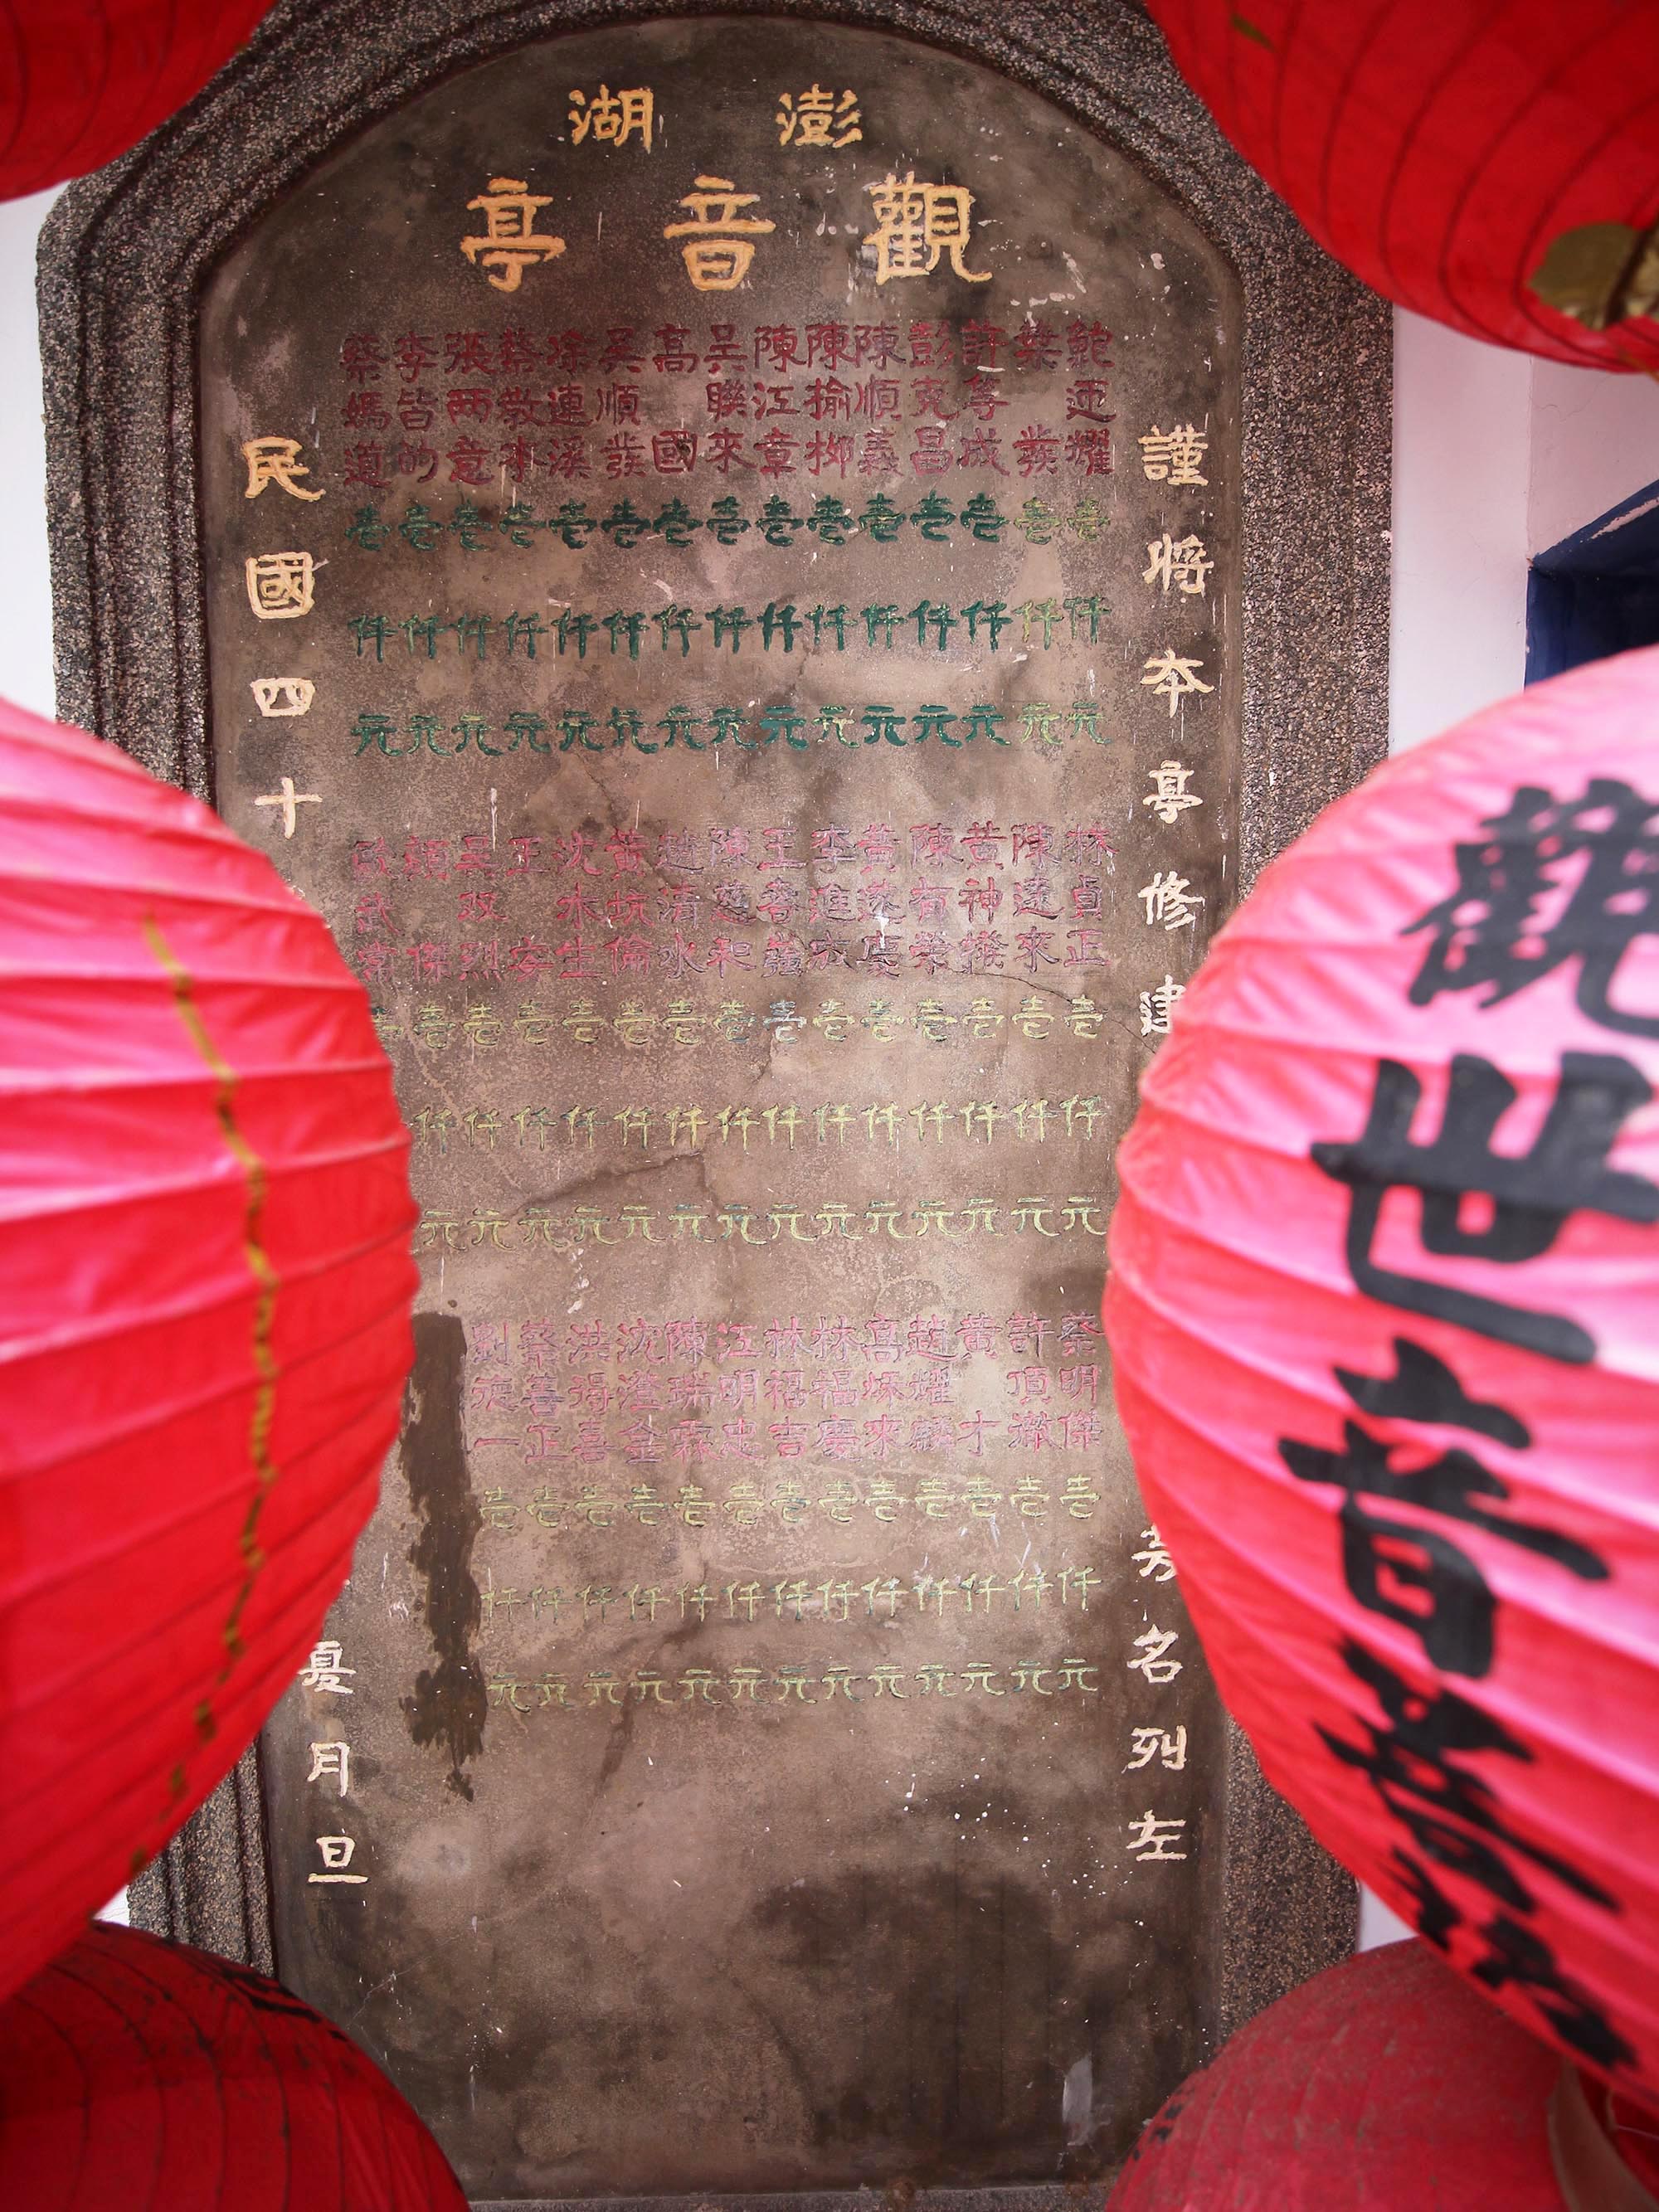 澎湖
觀音亭
謹將本亭修建
芳名列左
鮑迺耀 壹仟元
葉發 壹仟元
許等成 壹仟元
彭克昌 壹仟元
陳順義 壹仟元
陳榆柳 壹仟元
陳江章 壹仟元
吳聯來 壹仟元
高國 壹仟元
吳順發 壹仟元
涂連溪 壹仟元
蔡教 壹仟元
張兩意 壹仟元
李皆的 壹仟元
蔡媽道 壹仟元
林貞正 壹仟元
陳遠來 壹仟元
黃神撥 壹仟元
陳有榮 壹仟元
黃遂慶 壹仟元
李進 壹仟元
王春 壹仟元
陳慈和 壹仟元
趙清水 壹仟元
黃坑倫 壹仟元
沈水生 壹仟元
王安 壹仟元
吳政烈 壹仟元
顏傑 壹仟元
歐武常
蔡明傑 壹仟元
許頂 壹仟元
黃才 壹仟元
趙耀麟 壹仟元
高來 壹仟元
林福慶 壹仟元
林福吉 壹仟元
江明忠 壹仟元
陳瑞霖 壹仟元
沈澄金 壹仟元
洪得喜 壹仟元
蔡喜正 壹仟元
劉德一 壹仟元
民國四十
夏月旦
觀世音菩